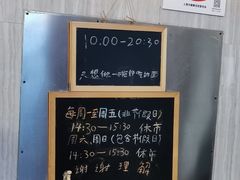 10.00-20:30
只想做一碗好吃的面
每周一至周五(非节假日)
14:30—15:30 休市
周六、周日(包含节假日)
14:30—15:30 休市
谢谢理解